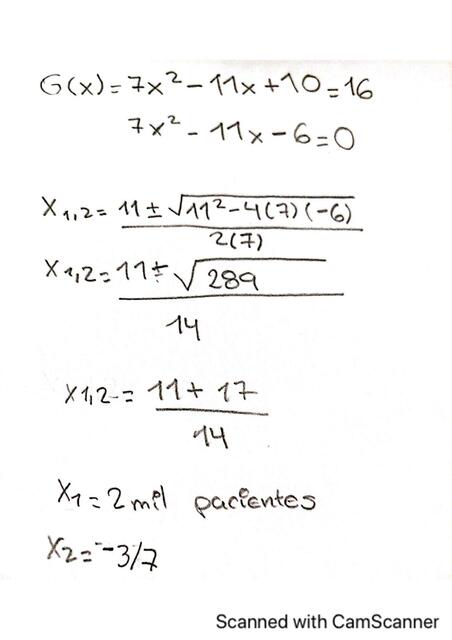 G(x)=7x²-11x+10=16
7x²-11x-6=0
X₁,₂=11±√11²-4(7)(-6)
2(7)
X₁,₂=11±√289
14
X1,2=11+17
14
X₁=2mil pacientes
X₂=-3/7
Scanned with CamScanner